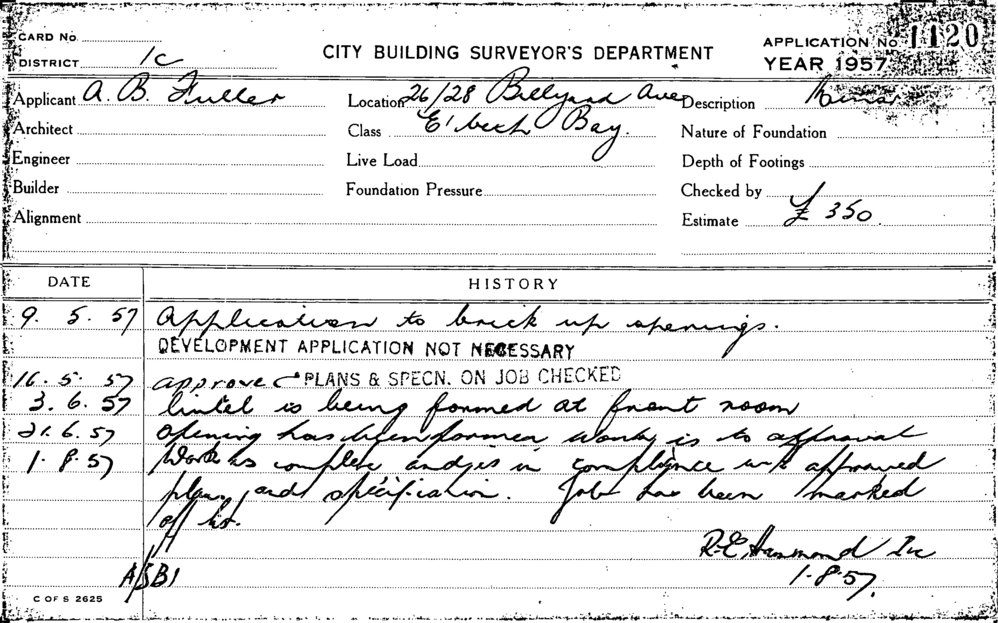 CARD No.
DISTRICT 1C
CITY BUILDING SURVEYOR'S DEPARTMENT
APPLICATION No. 1120
YEAR 1957
Applicant A. B. Fuller
Location 26/28 Billyard Ave
Description
Architect
Class E'beth Bay.
Nature of Foundation
Engineer
Live Load
Depth of Footings
Builder
Foundation Pressure
Checked by
Alignment
Estimate £ 350.
DATE HISTORY
9. 5. 57 Application to brick up openings.
DEVELOPMENT APPLICATION NOT NECESSARY
16. 5. 57 approved PLANS & SPECN. ON JOB CHECKED
3. 6. 57 lintel is being formed at front room
21. 6. 57 opening has been formed work is to approval
1. 8. 57 Work is complete and is in compliance with approved
plans and specification. Job has been marked
off list.
R.E. Hammond
1.8.57.
A/SB1
C OF S 2625